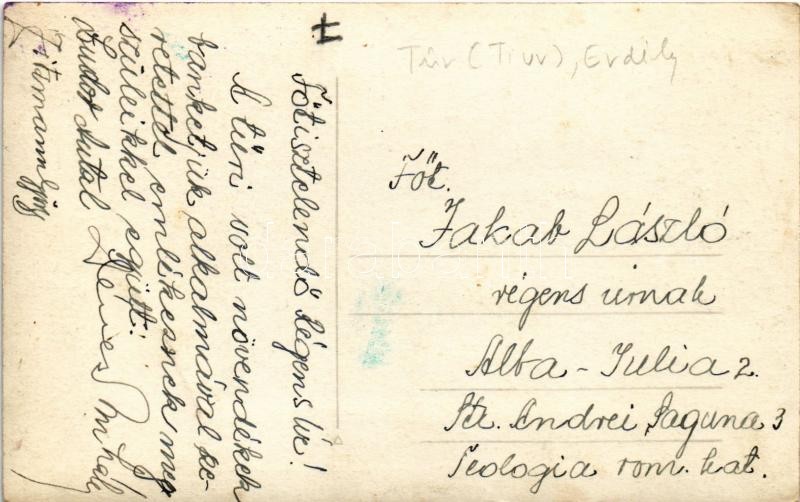 Tür (Tiur), Erdély
Főtisztelendő Régens úr!
A türi volt növendékek
bankettjük alkalmával sze-
retettel emlékeznek meg
szüleikkel együtt.
Antal
Mihály
Főt.
Jakab László
régens úrnak
Alba-Iulia 2.
Str. Andrei Șaguna 3
Teologia rom. kat.